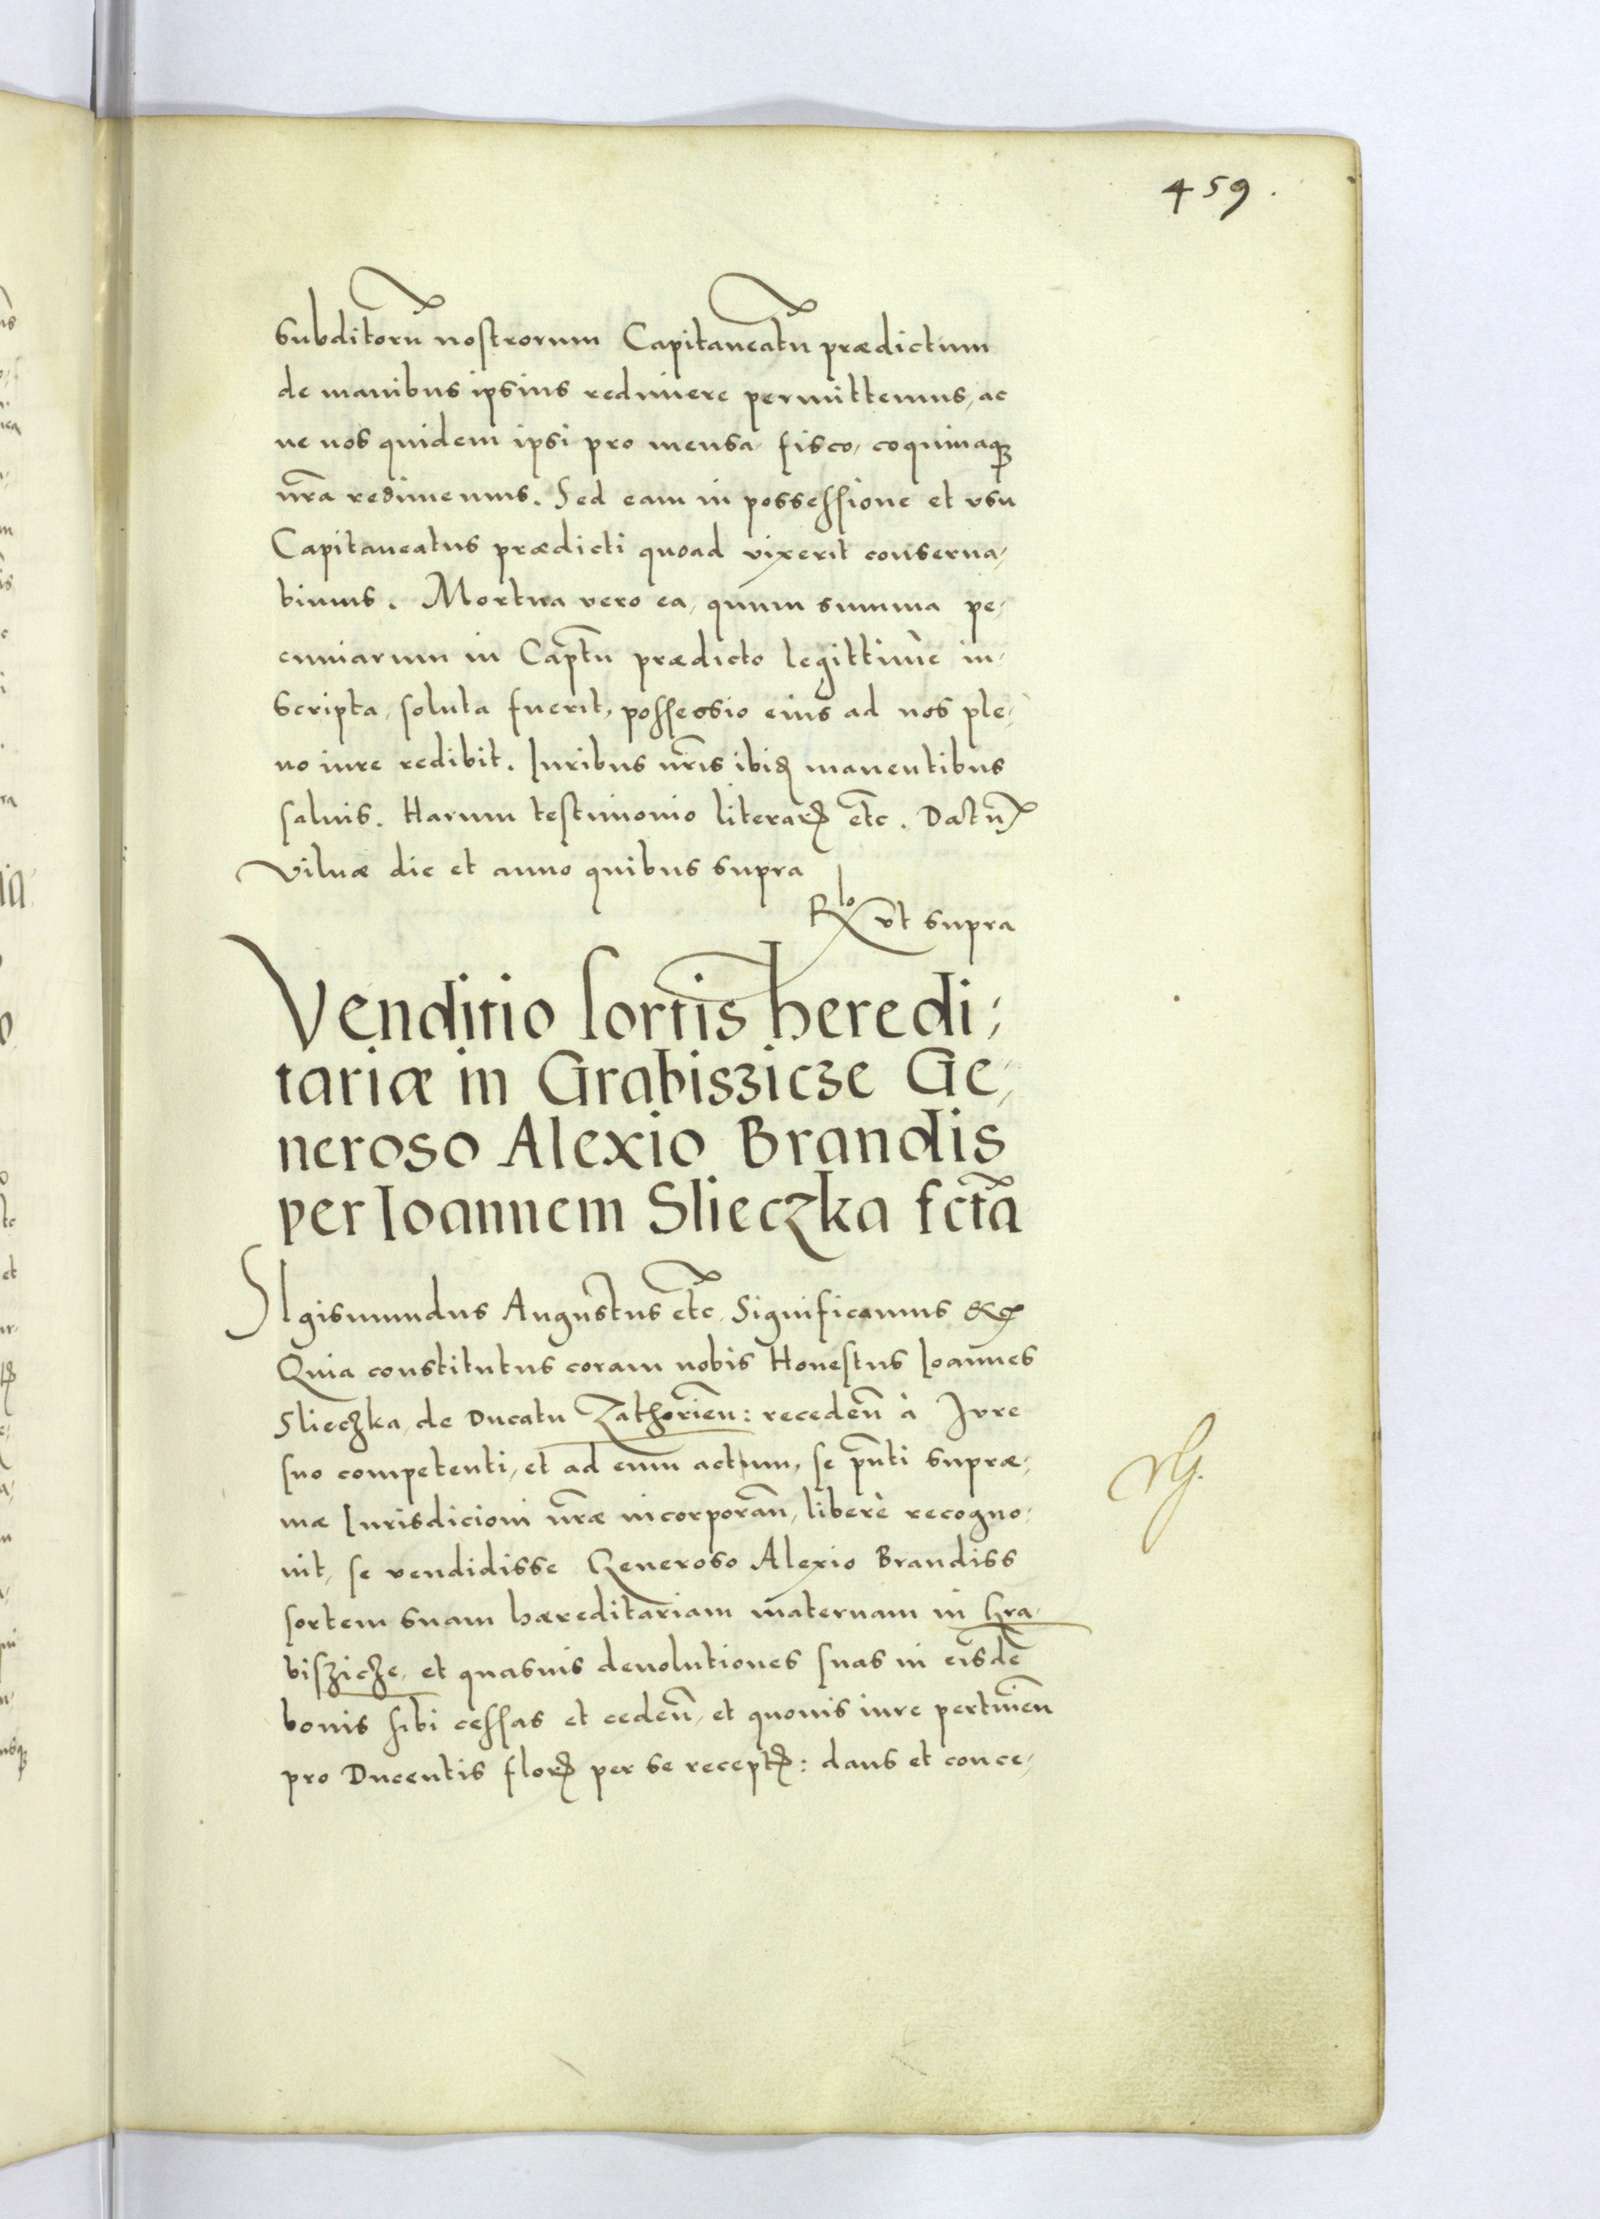 459.
subditorū nostrorum Capitaneatū prædictum
de manibus ipsius redimere permittemus, ac
ne nos quidem ipsi pro mensa, fisco, coquinaqꝫ
nr̄a redimemus. Sed eam in possessione et vsu
Capitaneatus prædicti quoad vixerit conserua,
bimus. Mortua vero ea, quum summa pe,
cuniarum in Captū prædicto legittimè in,
scripta, soluta fuerit, possessio eius ad nos ple,
no iure redibit. Iuribus nr̄is ibidꝫ manentibus
saluis. Harum testimonio literarꝫ etc. Datū
Vilnæ die et anno quibus supra
Rlo vt supra
Venditio sortis heredi,
tariæ in Grabiszicze Ge,
neroso Alexio Brandis
per Ioannem Slieczka fctā
SIgismundus Augustus etc. Significamus &c
Quia constitutus coram nobis Honestus Ioannes
Slieczka, de Ducatu Zathorien̄: receden̄ à Iure
suo competenti, et ad eum actum, se pn̄ti supræ,
mæ Iurisdicioni nr̄æ incorporan̄, liberè recogno,
uit, se vendidisse Generoso Alexio Brandiss
sortem suam hæreditariam maternam in Gra,
biszicze, et quasuis deuolutiones suas in eisdē
bonis sibi cessas et ceden̄, et quouis iure pertinen̄
pro Ducentis florꝫ per se receptꝫ: dans et conce,